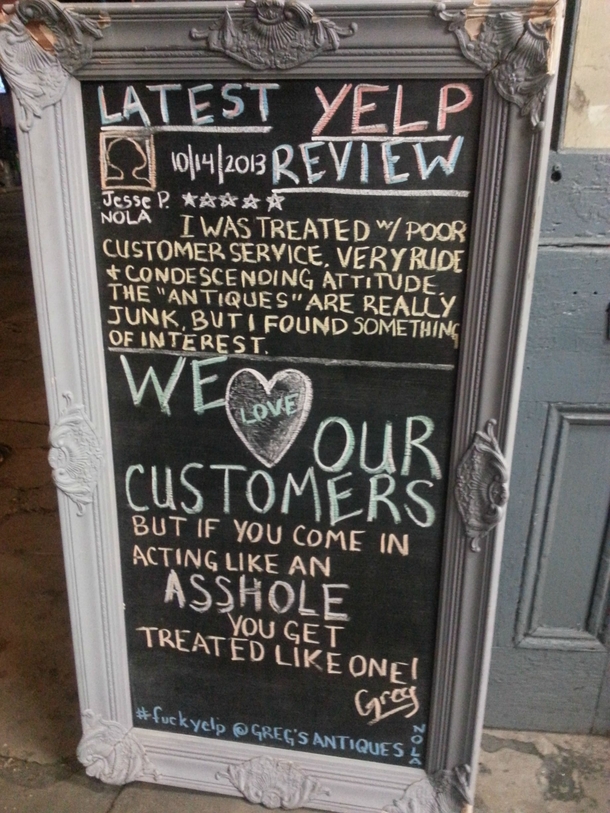 LATEST YELP
10/14/2013 REVIEW
Jesse P.
NOLA
I WAS TREATED W/ POOR
CUSTOMER SERVICE. VERY RUDE
& CONDESCENDING ATTITUDE.
THE "ANTIQUES" ARE REALLY
JUNK, BUT I FOUND SOMETHING
OF INTEREST.
WE LOVE OUR
CUSTOMERS
BUT IF YOU COME IN
ACTING LIKE AN
ASSHOLE
YOU GET
TREATED LIKE ONE!
Greg
#fuckyelp @ GREG'S ANTIQUES NOLA